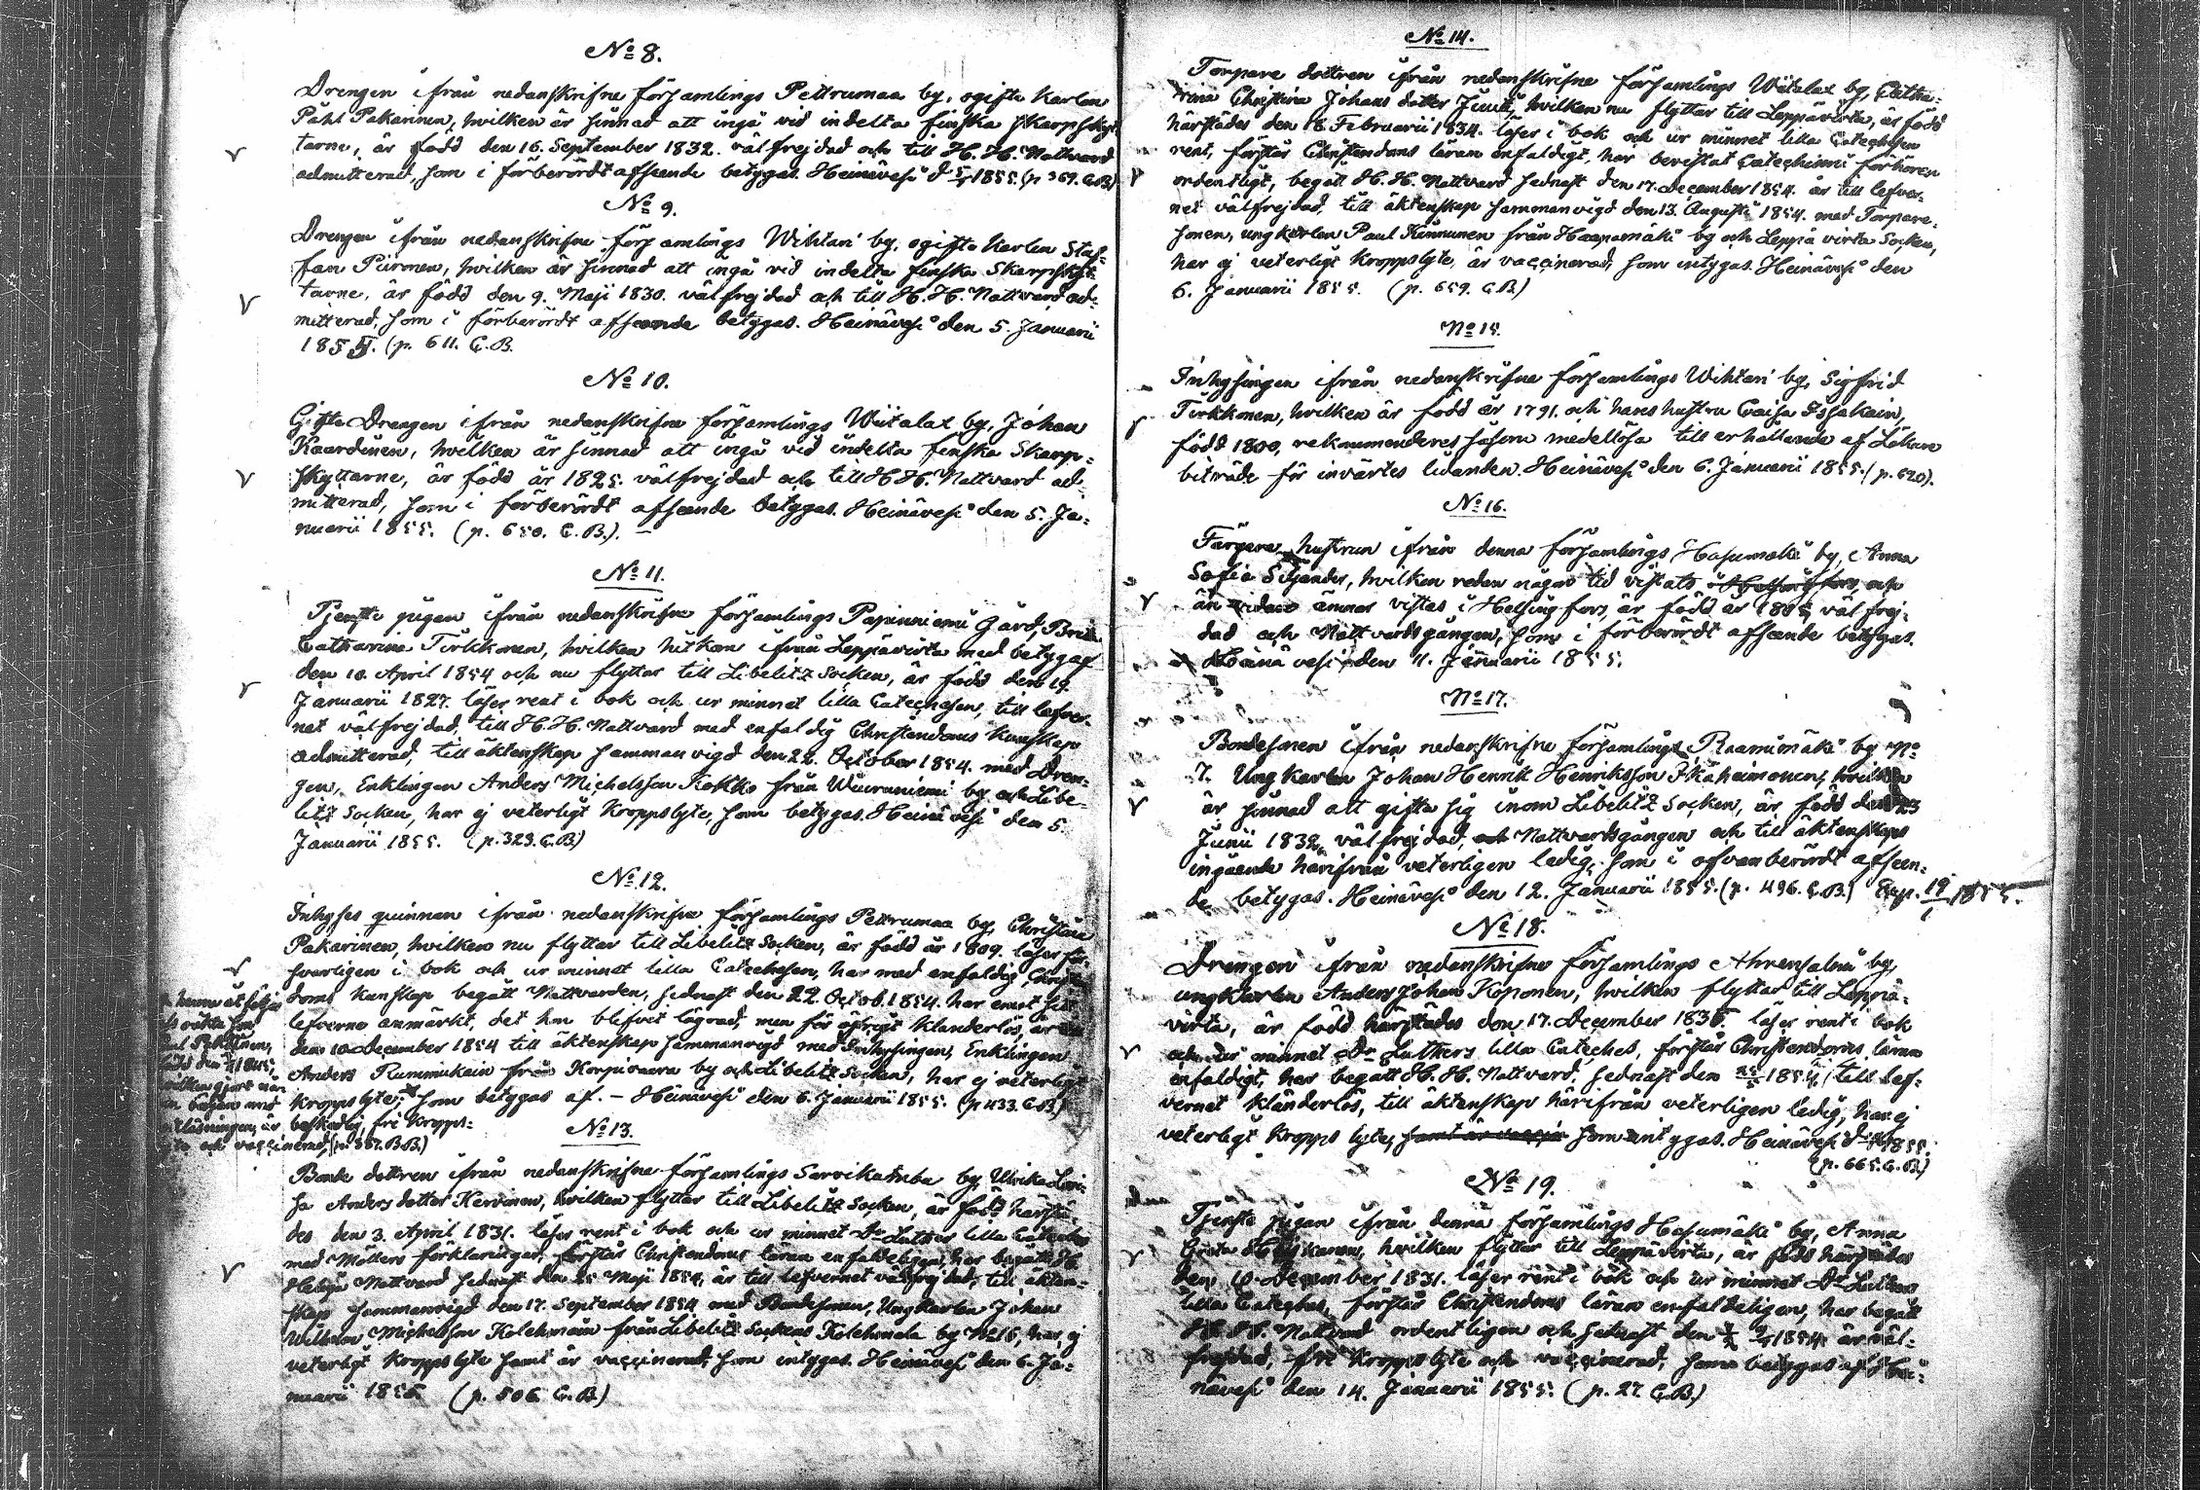 No 8.
Drengen ifrån nedanskrifne församlings Pettrumaa by, ogifte Karlen
Påhl Pakarinen, hwilken är sinnad att ingå vid indelta finska Skarpskyt-
tarne, är född den 16. September 1832. välfrejdad och till H. H. Nattvard
admitterad, som i förberördt afseende betygas. Heinävesi d 5/1 1855. (p. 369. C.B.)
No 9.
Drengen ifrån nedanskrifne församlings Wihtari by, ogifte Karlen Staf-
fan Piironen, hwilken är sinnad att ingå vid indelta finska Skarpskyt-
tarne, är född den 9. Maji 1830. välfrejdad och till H. H. Nattvard ad-
mitterad, som i förberördt afseende betygas. Heinävesi den 5. Januarii
1855. (p. 611. C.B.
No 10.
Gifte Drengen ifrån nedanskrifne församlings Wiitalax by, Johan
Kaardinen, hwilken är sinnad att ingå vid indelta finska Skarp-
skyttarne, är född år 1825. välfrejdad och till H.H. Nattvard ad-
mitterad, som i förberördt afseende betygas. Heinävesi den 5. Ja-
nuarii 1855. (p. 650. C.B.). —
No 11.
Tjenste pigan ifrån nedanskrifne församlings Papinniemi Gård, Brita
Catharina Tirkkonen, hwilken hitkom ifrån Leppävirta med betyg af
den 10. April 1854 och nu flyttar till Libelitz Socken, är född den 19.
Januarii 1827. läser rent i bok och ur minnet lilla Catechesen, till lefver-
net välfrejdad, till H. H. Nattvard med enfaldig Christendoms kunskap
admitterad, till äktenskap sammanvigd den 22. October 1854. med Dren-
gen, Enklingen Anders Michelsson Kokko från Wuoruniemi by och Libe-
litz Socken, har ej veterligt Kroppslyte, som betygas. Heinävesi den 5.
Januarii 1855. (p. 323. C.B.)
No 12.
Inhyses quinnan ifrån nedanskrifne församlings Pettrumaa by, Christina
Pakarinen, hwilken nu flyttar till Libelitz Socken, är född år 1809. läser för-
svarligen i bok och ur minnet lilla Catechesen, har med enfaldig Christen-
doms kunskap begått Nattvarden, sednast den 22. Octob. 1854. har emot sitt
lefverne anmärkt, det hon blefvet lägrad, men för öfrigt klanderlös, är
den 10 December 1854 till äktenskap sammanvigd med Inhysingen, Enklingen
Anders Rummukain från Konjivaara by och Libelitz Socken, har ej veterligt
Kroppslyte, som betygas af. — Heinävesi den 6. Januarii 1855. (p 433. C.B.)
henne åt följer
oäkta son,
Paul Pakarinen,
född den 1845,
hwilken gjort nån
början med
innanläsningen, är beskedlig, fri Kropps-
lyte och vaccinerad, (p. 387. B.B.)
No 13.
Bonde dottren ifrån nedanskrifne församlings Sarvikumba by, Ulrika Lovi-
sa Anders dotter Kervinen, hwilken flyttar till Libelitz Socken, är född härstä-
des den 3. April 1831. läser rent i bok och ur minnet Dr Luthers lilla Catches
med Möllers förklaringar, förstår Christendoms läran enfaldeligen, har begått
Heliga Nattvard sednast den 25 Maji 1854, är till lefvernet välfrejdad, till äkten-
skap sammanvigd den 17. September 1854 med Bondesonen, Ungkarlen Johan
Wilhelm Michelsson Kolehmain från Libelitz Sockens Kolehmala by No 16, har ej
veterligt Kroppslyte samt är vaccinerad, som intygas. Heinävesi den 6. Ja-
nuarii 1855 (p. 506 C.B.)
No 14.
Torpare dottren ifrån nedanskrifne församlings Wiitalax by, Catha-
rina Christina Johans dotter Juuti, hwilken nu flyttar till Leppävirta, är född
härstädes den 18. Februarii 1834. läser i bok och ur minnet lilla Catechesen
rent, förstår Christendoms läran enfaldigt, har bevistat Catechismi förhören
ordentligt, begått H. H. Nattvard sednast den 17. December 1854. är till lefver-
net välfrejdad, till äktenskap sammanvigd den 13. Augusti 1854. med Torpare-
sonen, ungkarlen Paul Kinnunen från Haapamäki by och Leppävirta Socken,
har ej veterligt Kroppslyte, är vaccinerad, som intygas. Heinävesi den
6. Januarii 1855. (p. 659. C.B.)
No 15.
Inhysingen ifrån nedanskrifne församlings Wihtari by, Sigfrid
Tirkkonen, hwilken är född år 1791. och hans hustru Caisa Issakain,
född 1800, rekommenderes såsom medellösa till erhållande af Läkare
biträde för invärtes lidanden. Heinävesi den 6. Januarii 1855. (p. 620).
No 16.
Färgare hustrun ifrån denna församlings Hasumäki by, Anna
Sofia Siljander, hwilken redan någon tid vistats i Helsingfors, och
än vidare ämnar vistas i Helsingfors, är född år 1805, välfrej-
dad och Nattvardsgången, som i förberördt afseende betygas.
Heinävesi den 11. Januarii 1855.
No 17.
Bondesonen ifrån nedanskrifne församlings Raanimäki by No
7. Ungkarlen Johan Henrik Henriksson Ikäheimonen, hwilken
är sinnad att gifta sig inom Libelitz Socken, är född den 23
Junii 1832, välfrejdad, och Nattvardsgången och till äktenskaps
ingående härifrån veterligen ledig, som i ofvanberördt afseen-
de betygas. Heinävesi den 12. Januarii 1855. (p. 496. C.B.) Exp. 19/1 1855.
No 18.
Drengen ifrån nedanskrifne församlings Ahvensalmi by,
ungkarlen Anders Johan Koponen, hwilken flyttar till Leppä-
virta, är född härstädes den 17. December 1835. läser rent i bok
och ur minnet Dr Luthers lilla Cateches, förstår Christendoms läran
enfaldigt, har begått H. H. Nattvard, sednast den 1854, till lef-
vernet klanderlös, till äktenskap härifrån veterligen ledig, har ej
veterligt Kropps lyte, samt är vaccin som intygas. Heinävesi d 1855.
(p. 665. C.B.)
No 19.
Tjenste pigan ifrån denna församlings Hasumäki by, Anna
Greta, hwilken flyttar till Leppävirta, är född härstädes
den 10 December 1831. läser rent i bok och ur minnet Dr Luthers
lilla Cateches, förstår Christendoms läran enfaldeligen, har begått
H. H. Nattvard ordentligen och sednast den 1854. är väl-
frejdad, fri Kroppslyte och vaccinerad, som betygas af Hei-
nävesi den 14. Januarii 1855. (p. 27. C.B.)